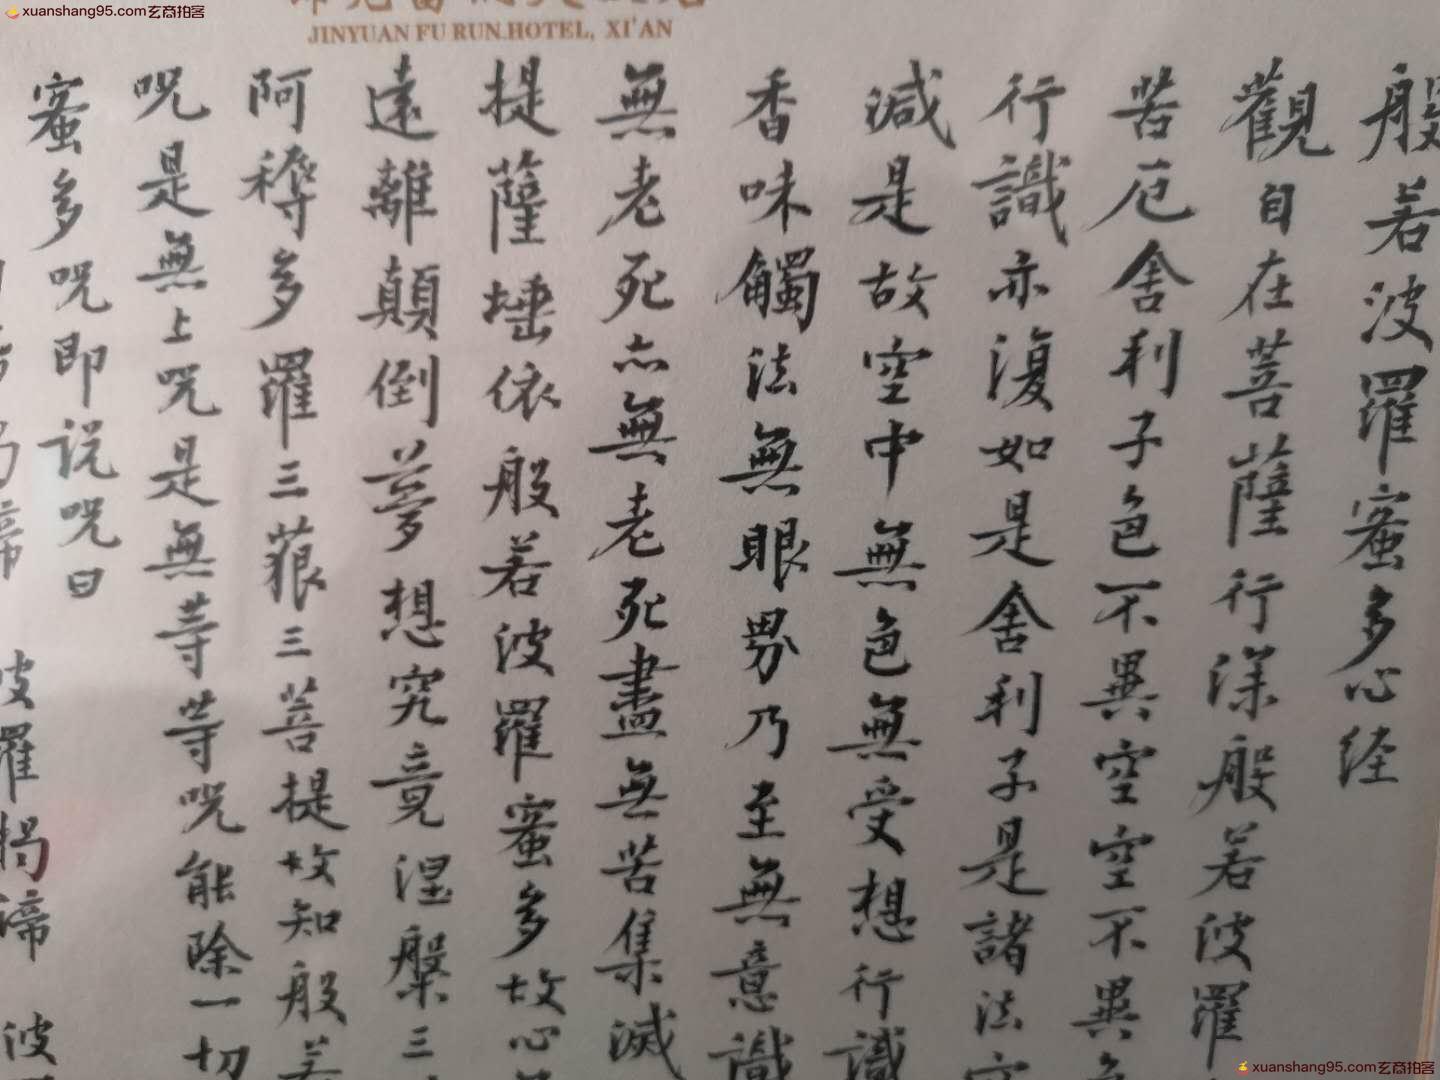 xuanshang95.com玄商拍客
JINYUAN FU RUN.HOTEL, XI'AN
般若波羅蜜多心经
觀自在菩薩行深般若波羅
苦厄舍利子色不異空空不異
行識亦復如是舍利子是諸法空
減是故空中無色無受想行識
香味觸法無眼界乃至無意識
無老死亦無老死盡無苦集滅
提薩埵依般若波羅蜜多故心
遠離顛倒夢想究竟涅槃三
阿耨多羅三藐三菩提故知般若
呪是無上呪是無等等呪能除一切
蜜多呪即说呪曰
波羅揭諦 波
xuanshang95.com玄商拍客